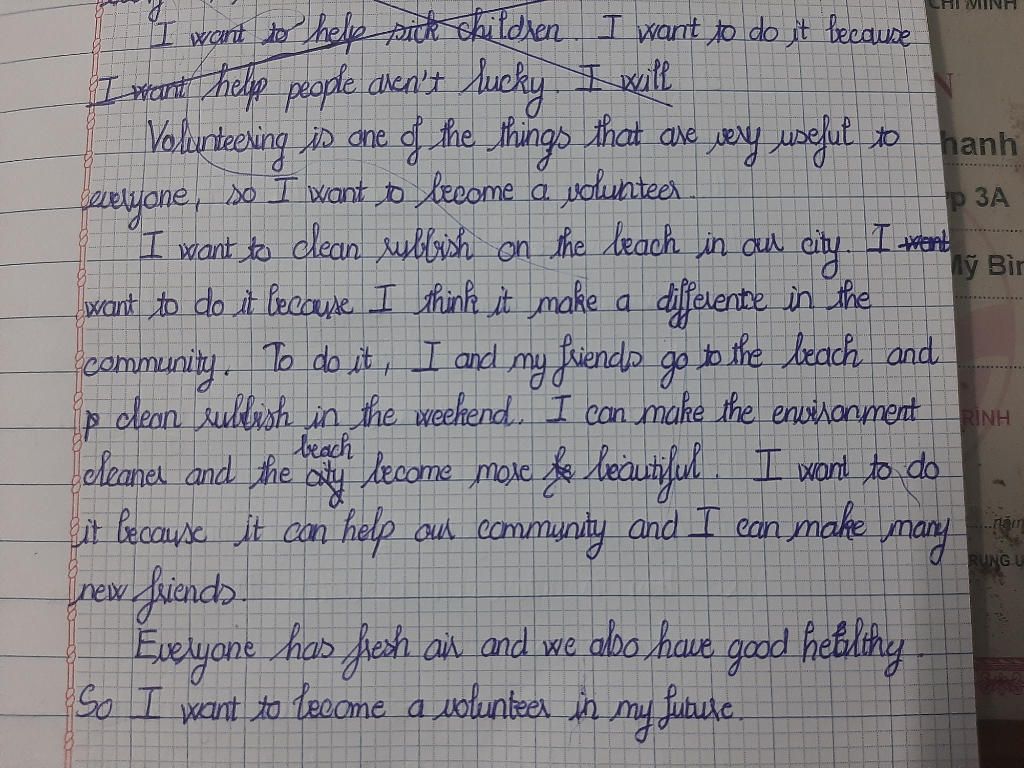 I want to help sick children. I want to do it because
I want help people aren't lucky. I will
Volunteering is one of the things that are very useful to
everyone, so I want to become a volunteer.
I want to clean rubbish on the beach in our city. I want
want to do it because I think it make a difference in the
community. To do it, I and my friends go to the beach and
p clean rubbish in the weekend. I can make the environment
beach
cleaner and the city become more beautiful. I want to do
it because it can help our community and I can make many
new friends.
Everyone has fresh air and we also have good healthy.
So I want to become a volunteer in my future.
CHÍ MINH
N
hanh
p 3A
Mỹ Bìn
RÌNH
năm
RUNG U